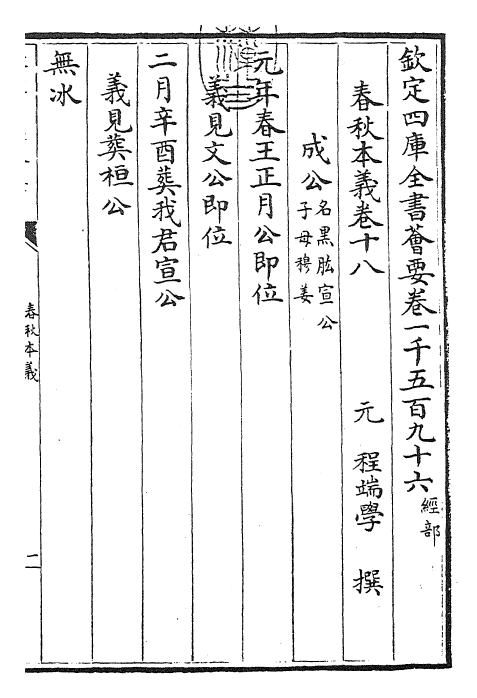 欽定四庫全書薈要卷一千五百九十六 經部
春秋本義卷十八 元 程端學 撰
成公 名黑肱宣公子母穆姜
元年春王正月公即位
義見文公即位
二月辛酉葬我君宣公
義見葬桓公
無冰
春秋本義
二